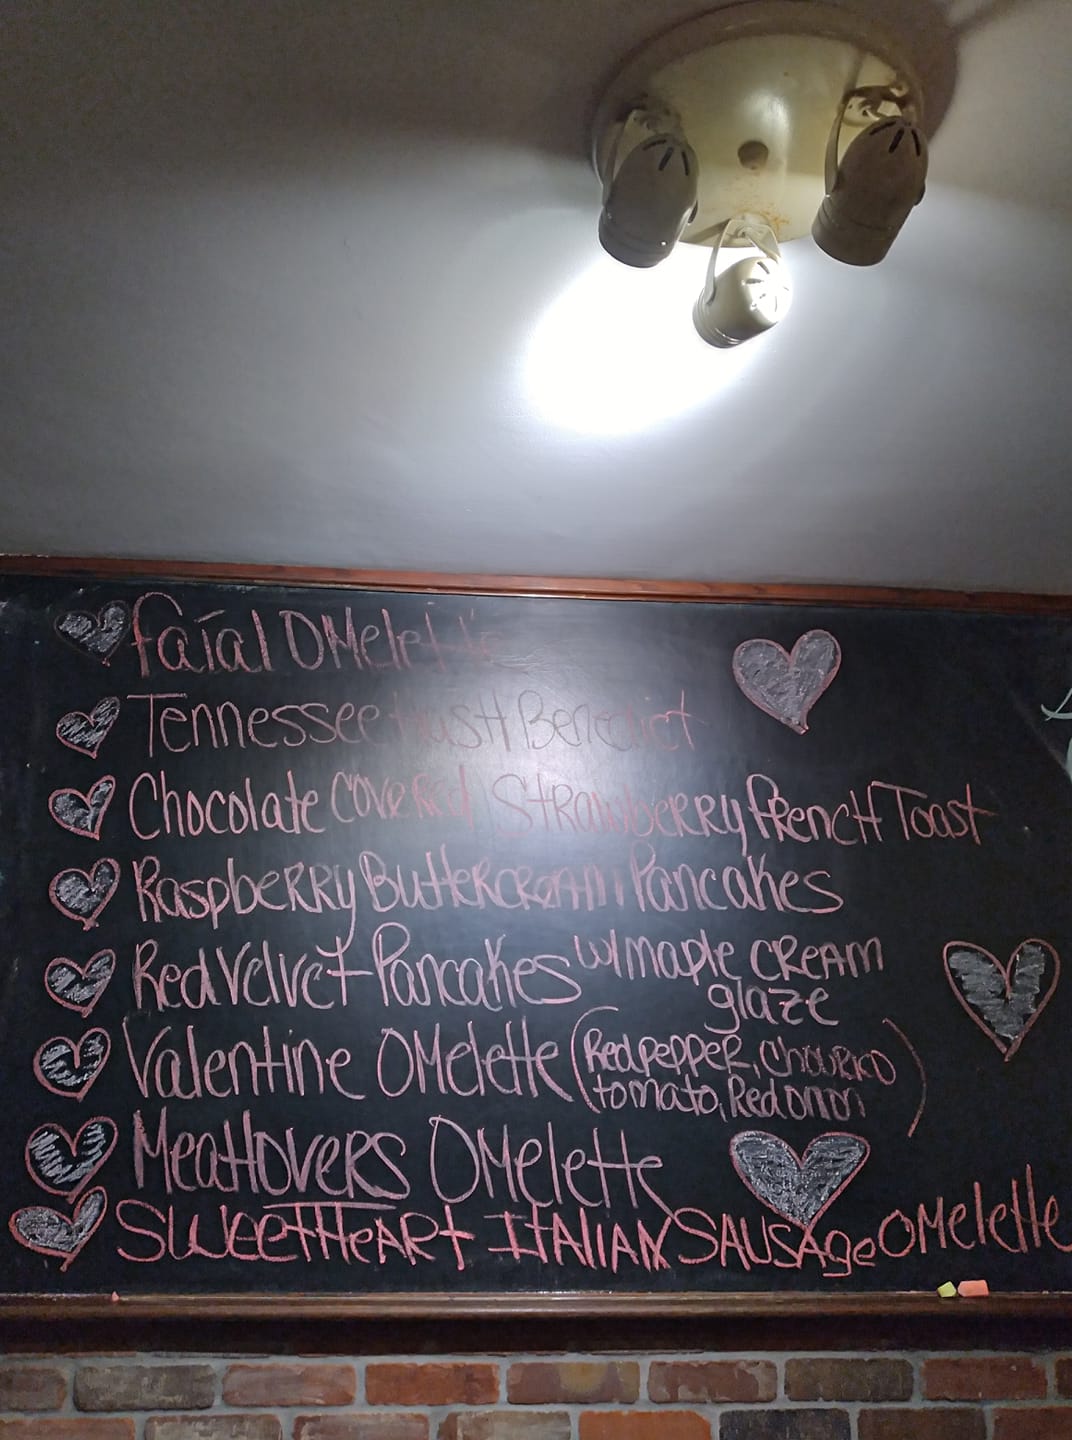 Faial Omelette
Tennessee Hash Benedict
Chocolate Covered Strawberry French Toast
Raspberry Buttercream Pancakes
Red Velvet Pancakes w/maple CREAM
glaze
Valentine Omelette (Red pepper, Chourico
tomato, Red onion)
Meatlovers Omelette
SweetHeart Italian Sausage Omelette